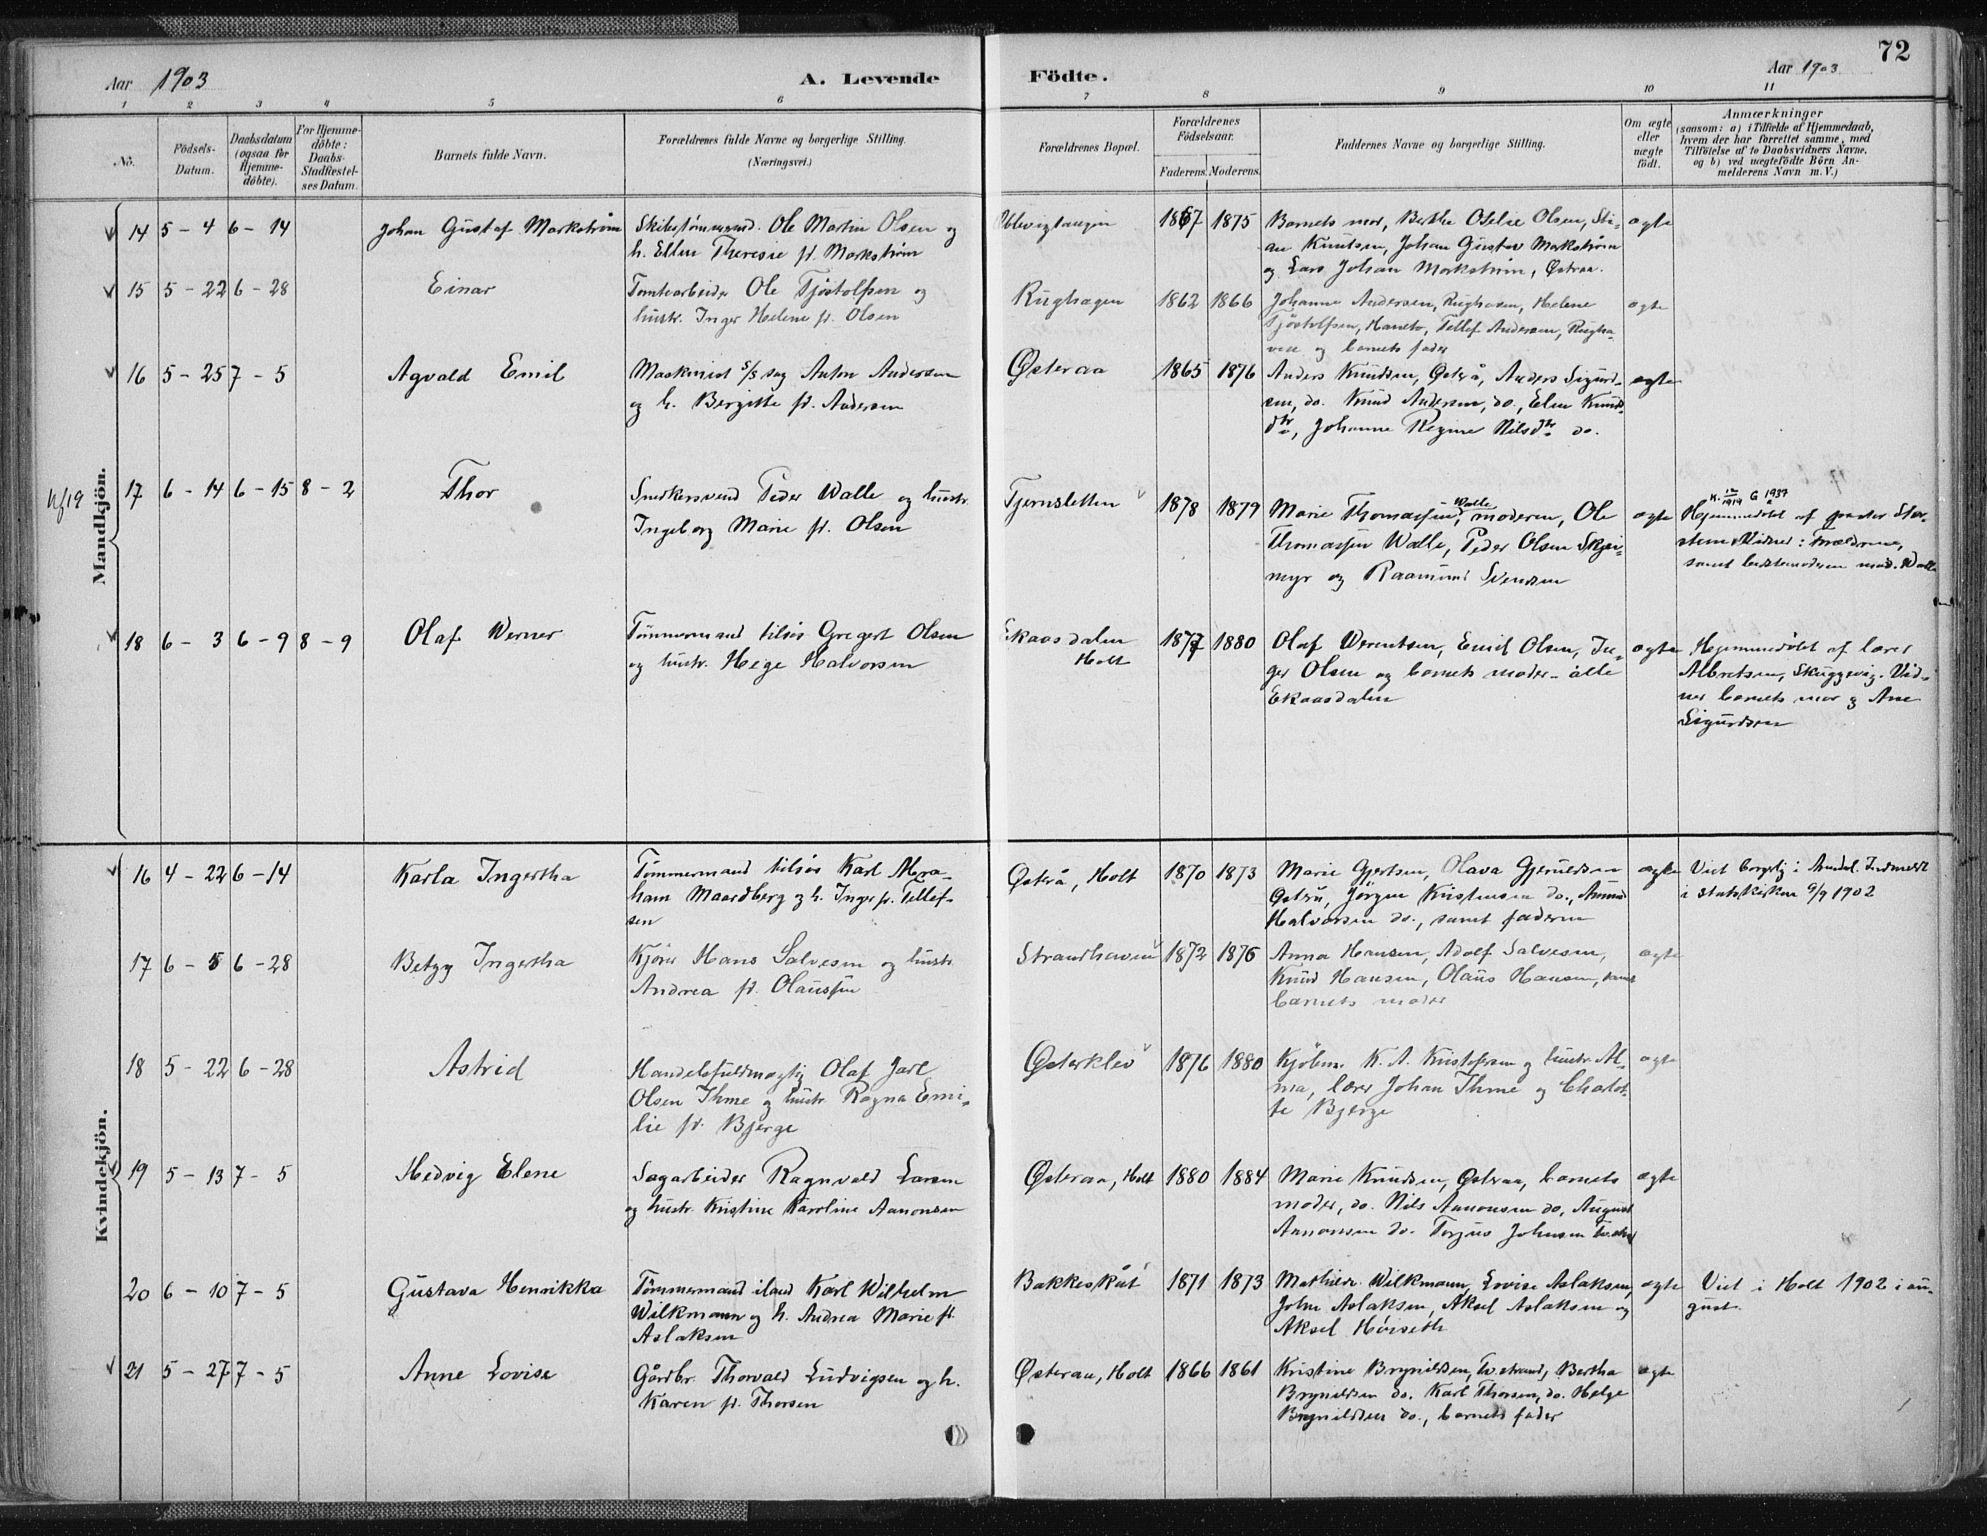 72
Aar 1903
A. Levende
Födte.
Aar 1903
1 2 3 4 5 6 7 8 9 10 11
No.
Födsels-
Datum.
Daabsdatum
(ogsaa for
Hjemme-
döbte).
For Hjemme-
döbte:
Daabs-
Stadfæstel-
ses Datum.
Barnets fulde Navn.
Forældrenes fulde Navne og borgerlige Stilling.
(Næringsvei.)
Forældrenes Bopæl.
Forældrenes
Födselsaar.
Faderens. Moderens.
Faddernes Navne og borgerlige Stilling.
Om ægte
eller
uægte
födt.
Anmærkninger
(saasom: a) i Tilfælde af Hjemmedaab,
hvem der har forrettet samme, med
Tilföielse af to Daabsvidners Navne,
og b) ved uegtefödte Börn An-
melderens Navn m. V.)
Mandkjön.
14 5 - 4 6 - 14 Johan Gustaf Markström Skibstømmermd. Ole Martin Olsen og
h. Ellen Theresie f. Markstrøm
1867 1875 Barnets mor, Berthe Otelie Olsen, Sti-
an Knutsen, Johan Gustav Markstrøm
og Lars Johan Markstrøm, Østraa.
ægte
15 5 - 22 6 - 28 Einar Tomtearbeider Ole Tjöstolfsen og
hustr. Inger Helene f. Olsen
Rughagen 1862 1866 Johanne Andersen, Rughaven, Helene
Tjöstolfsen, Tellef Andersen, Rugha-
ven og barnets fader
ægte
16 5 - 25 7 - 5 Agvald Emil Maskinist s/s sag Anton Andersen
og h. Bergitte f. Andersen
Østeraa 1865 1876 Anders Knudsen, Østerå, Anders Sigurd-
sen, do. Knud Andersen, do., Elen Knuds-
dtr, Johanne Regine Nilsdtr do.
ægte
17 6 - 14 6 - 15 8 - 2 Thor Snedkersvend Peder Walle og hustr.
Ingeborg Marie f. Olsen
Tjernsletten 1878 1879 Marie Thomassen Walle, moderen, Ole
Thomassen Walle, Peder Olsen Skjei-
myr og Raamund Svendsen
ægte
Hjemmedöbt af
Vidner: Forældrene,
samt bestemoderen mad. Walle
18 6 - 3 6 - 9 8 - 9 Olaf Werner Tömmermand tilsös Gregert Olsen
og hustr. Hege Halvorsen
Ekaasdalen
Holt
1877 1880 Olaf Werentsen, Emil Olsen, In-
ger Olsen og barnets moder - alle
Ekaasdalen
ægte
Hjemmedöbt af lærer
Albretsen, Skuggevig. Vid-
ner barnets mor og Ane
Sigurdsen
Kvindekjön.
16 4 - 22 6 - 14 Karla Ingertha Tömmermand tilsös Karl Abra-
ham Maardberg og h. Inger f. Tellef-
sen
Østrå, Holt 1870 1873 Marie Gjertsen, Olava Gjeruldsen
Østrå, Jörgen Kristensen do.,
Halvorsen do., samt faderen
ægte
Viet borgelig i Arendal. Indmeldt
i Statskirken 9/9 1902
17 6 - 5 6 - 28 Betzy Ingertha Hans Salvesen og hustr.
Andrea f. Olaussen
Strandhaven 1872 1876 Anna Hansen, Adolf Salvesen,
Knud Hansen, Olaus Hansen, samt
barnets moder
ægte
18 5 - 22 6 - 28 Astrid Handelsfuldmægtig Olaf Jarl
Olsen Thme og hustr. Ragna Emi-
lie f. Bjerge
Østerklev 1876 1880 Kjöbm. K. A. Kristofersen og hustr. Al-
ma, lærer Johan Thme og Charlot-
te Bjerge
ægte
19 5 - 13 7 - 5 Hedvig Elene Sagarbeider Ragnvald Larsen
og hustr. Kristine Karoline Aanonsen
Østeraa, Holt 1880 1884 Marie Knudsen, Østeraa, barnets
moder, do. Nils Aanonsen do, August
Aanonsen do. Torjus Johnsen
ægte
20 6 - 10 7 - 5 Gustava Henrikka Tömmermand iland Karl Wilhelm
Wilkmann og h. Andrea Marie f.
Aslaksen
Bakkeskåt 1871 1873 Mathilde Wilkmann, Lovise Aslaksen,
John Aslaksen, Aksel Aslaksen og
Aksel Høiseth
ægte
Viet i Holt 1902 i au-
gust.
21 5 - 27 7 - 5 Anne Lovise Gårdbr. Thorvald Ludvigsen og h.
Karen f. Thorsen
Østeraa, Holt 1866 1861 Kristine Brynildsen, Tvestrand, Bertha
Brynildsen do. Karl Thorsen, do. Helge
Brynildsen do., barnets fader
ægte